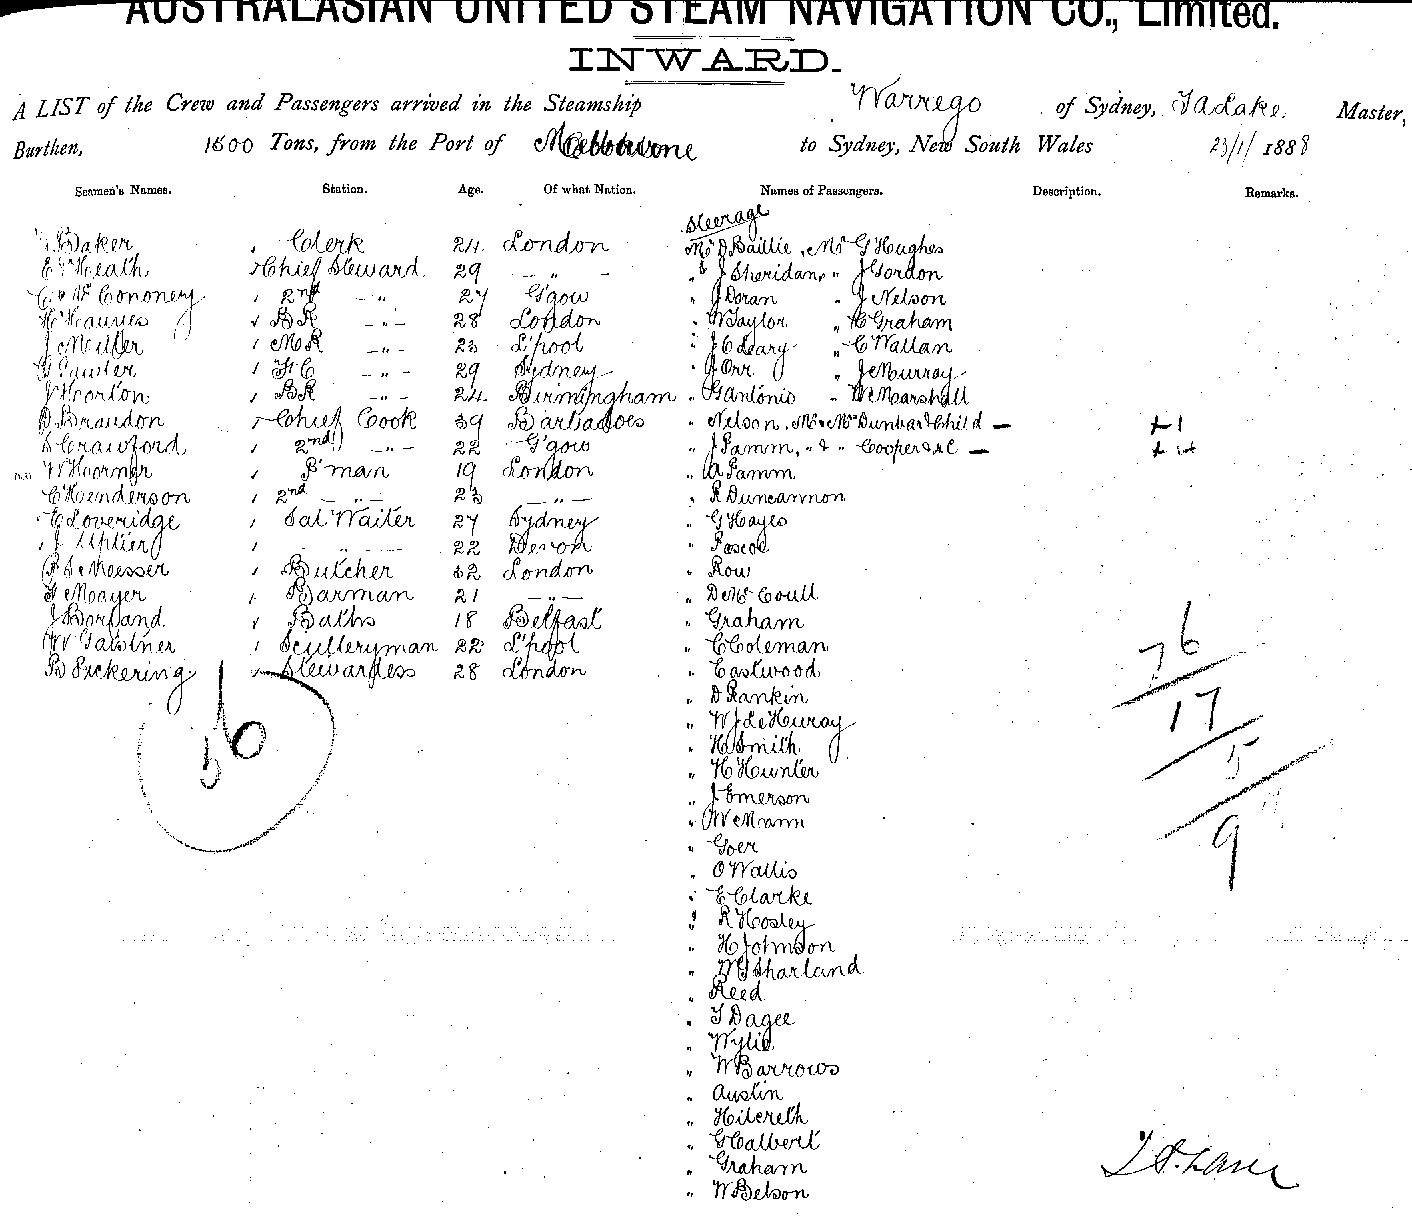 AUSTRALASIAN UNITED STEAM NAVIGATION CO., Limited.
INWARD.
A LIST of the Crew and Passengers arrived in the Steamship Warrego of Sydney, Master,
Burthen, 1600 Tons, from the Port of Melbourne to Sydney, New South Wales 23/1/1888
Seamen's Names. Station. Age. Of what Nation. Names of Passengers. Description. Remarks.
Steerage
Baker Clerk 24 London Mr D Baillie, Mr G Hughes
E Heath Chief Steward 29 - " - " J Sheridan, " J Gordon
2nd - " - 27 G'gow " J Doran " J Nelson
BR - " - 28 London " W Taylor " C Graham
J Miller MR - " - 23 L'pool " J O'Leary " C Wallan
- " - 29 Sydney " J Orr " J Murray
J Horton BR - " - 24 Birmingham " G Antonio " W Marshall
D Brandon Chief Cook 39 Barbadoes " Nelson, Mr & Mrs Dunbar & Child - + 1
D Crawford 2nd - " - 22 G'gow " J Pamm, " & " Cooper & C -
P'man 19 London " A Pamm
C Henderson 2nd - " - 23 - " - " R Duncannon
E Loveridge Sal Waiter 27 Sydney " G Hayes
J 22 Devon " Pascoe
Butcher 32 London " Row
Mayer Barman 21 - " - " D McCoull
J Borland Baths 18 Belfast " Graham
W Sculleryman 22 L'pool " C Coleman
B Pickering Stewardess 28 London " Eastwood
" D Rankin
" W J
" H Smith
" H Hunter
" J Emerson
" W Mann
" Goer
" O Wallis
" E Clarke
" R Hosley
" H Johnson
" W Sharland
" Reed
" T Dagee
" Wylie
" W Barrows
" Austin
" Hilcreth
" G Calvert
" Graham
" W Belson
56
76
17
5
9